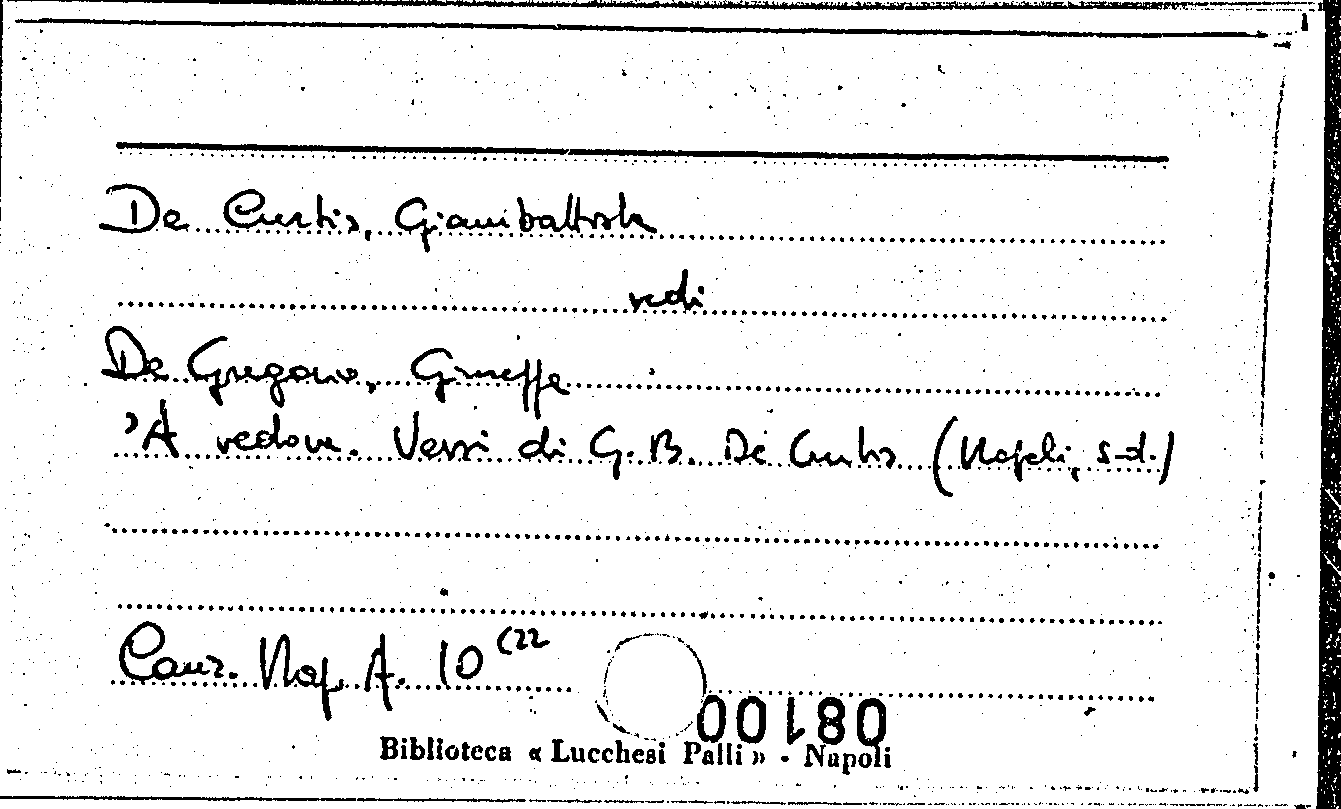 De Curtis, Giambattista
vedi
De Gregorio, Giuseppe
'A vedova. Versi di G. B. De Curtis (Napoli, s.d.)
Canz. Nap. A. 10 (22
08100
Biblioteca « Lucchesi Palli » - Napoli